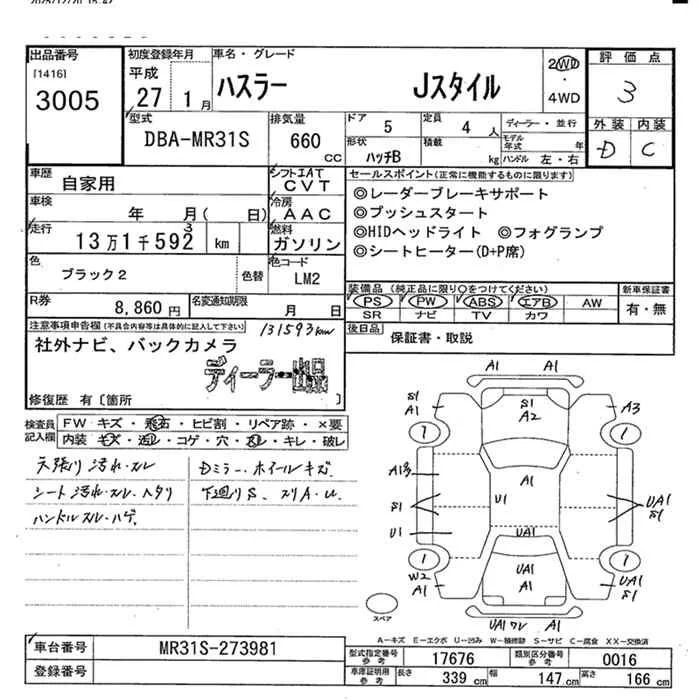 出品番号 初度登録年月 車名・グレード 評価点
[1416] 平成
3005 27 1月 ハスラー Jスタイル 2WD・4WD 3
外装 内装
D C
型式 排気量 ドア 定員 ディーラー・並行
DBA-MR31S 660 CC 5 4人 モデル年式 年
形状 積載 ハンドル 左・右
ハッチB kg
車歴 シフト EAT セールスポイント(正常に機能するものに限ります)
自家用 CVT ◎レーダーブレーキサポート
車検 冷房 ◎プッシュスタート
年 月( 日) AAC ◎HIDヘッドライト ◎フォグランプ
走行 燃料 ◎シートヒーター(D+P席)
13万1千592 3 km ガソリン
色 色替 色コード
ブラック2 LM2
装備品(純正品に限り○をつけてください) 新車保証書
PS PW ABS エアB AW 有・無
SR ナビ TV カワ
R券 8,860円 名変通知期限 月 日
後日品 保証書・取説
注意事項申告欄(不具合内容等は具体的に記入して下さい) 131593km
社外ナビ、バックカメラ
ディーラー出品
修復歴 有〔箇所 〕
検査員記入欄 FW キズ・飛石・ヒビ割・リペア跡・×要
内装 キズ・汚レ・コゲ・穴・スレ・キレ・破レ
天張り汚れ・スレ Dミラー・ホイールキズ
シート汚れ・スレ・ヘタリ 下廻りS、スリA・U
ハンドルスレ・ハゲ
A1 A1
S1 S1 A3
A1 A2
1 1
A1
A13
U1
S1 UA1
S1
U1 UA1
1 1
W2 UA1 UA1
A1 A1 S1
UA1 ワレ A1
スペア
A－キズ E－エクボ U－凹み W－補修跡 S－サビ C－腐食 XX－交換済
車台番号 MR31S-273981
登録番号
型式指定番号 参考 17676 類別区分番号 参考 0016
車庫証明用 参考 長さ 339cm 幅 147cm 高さ 166cm